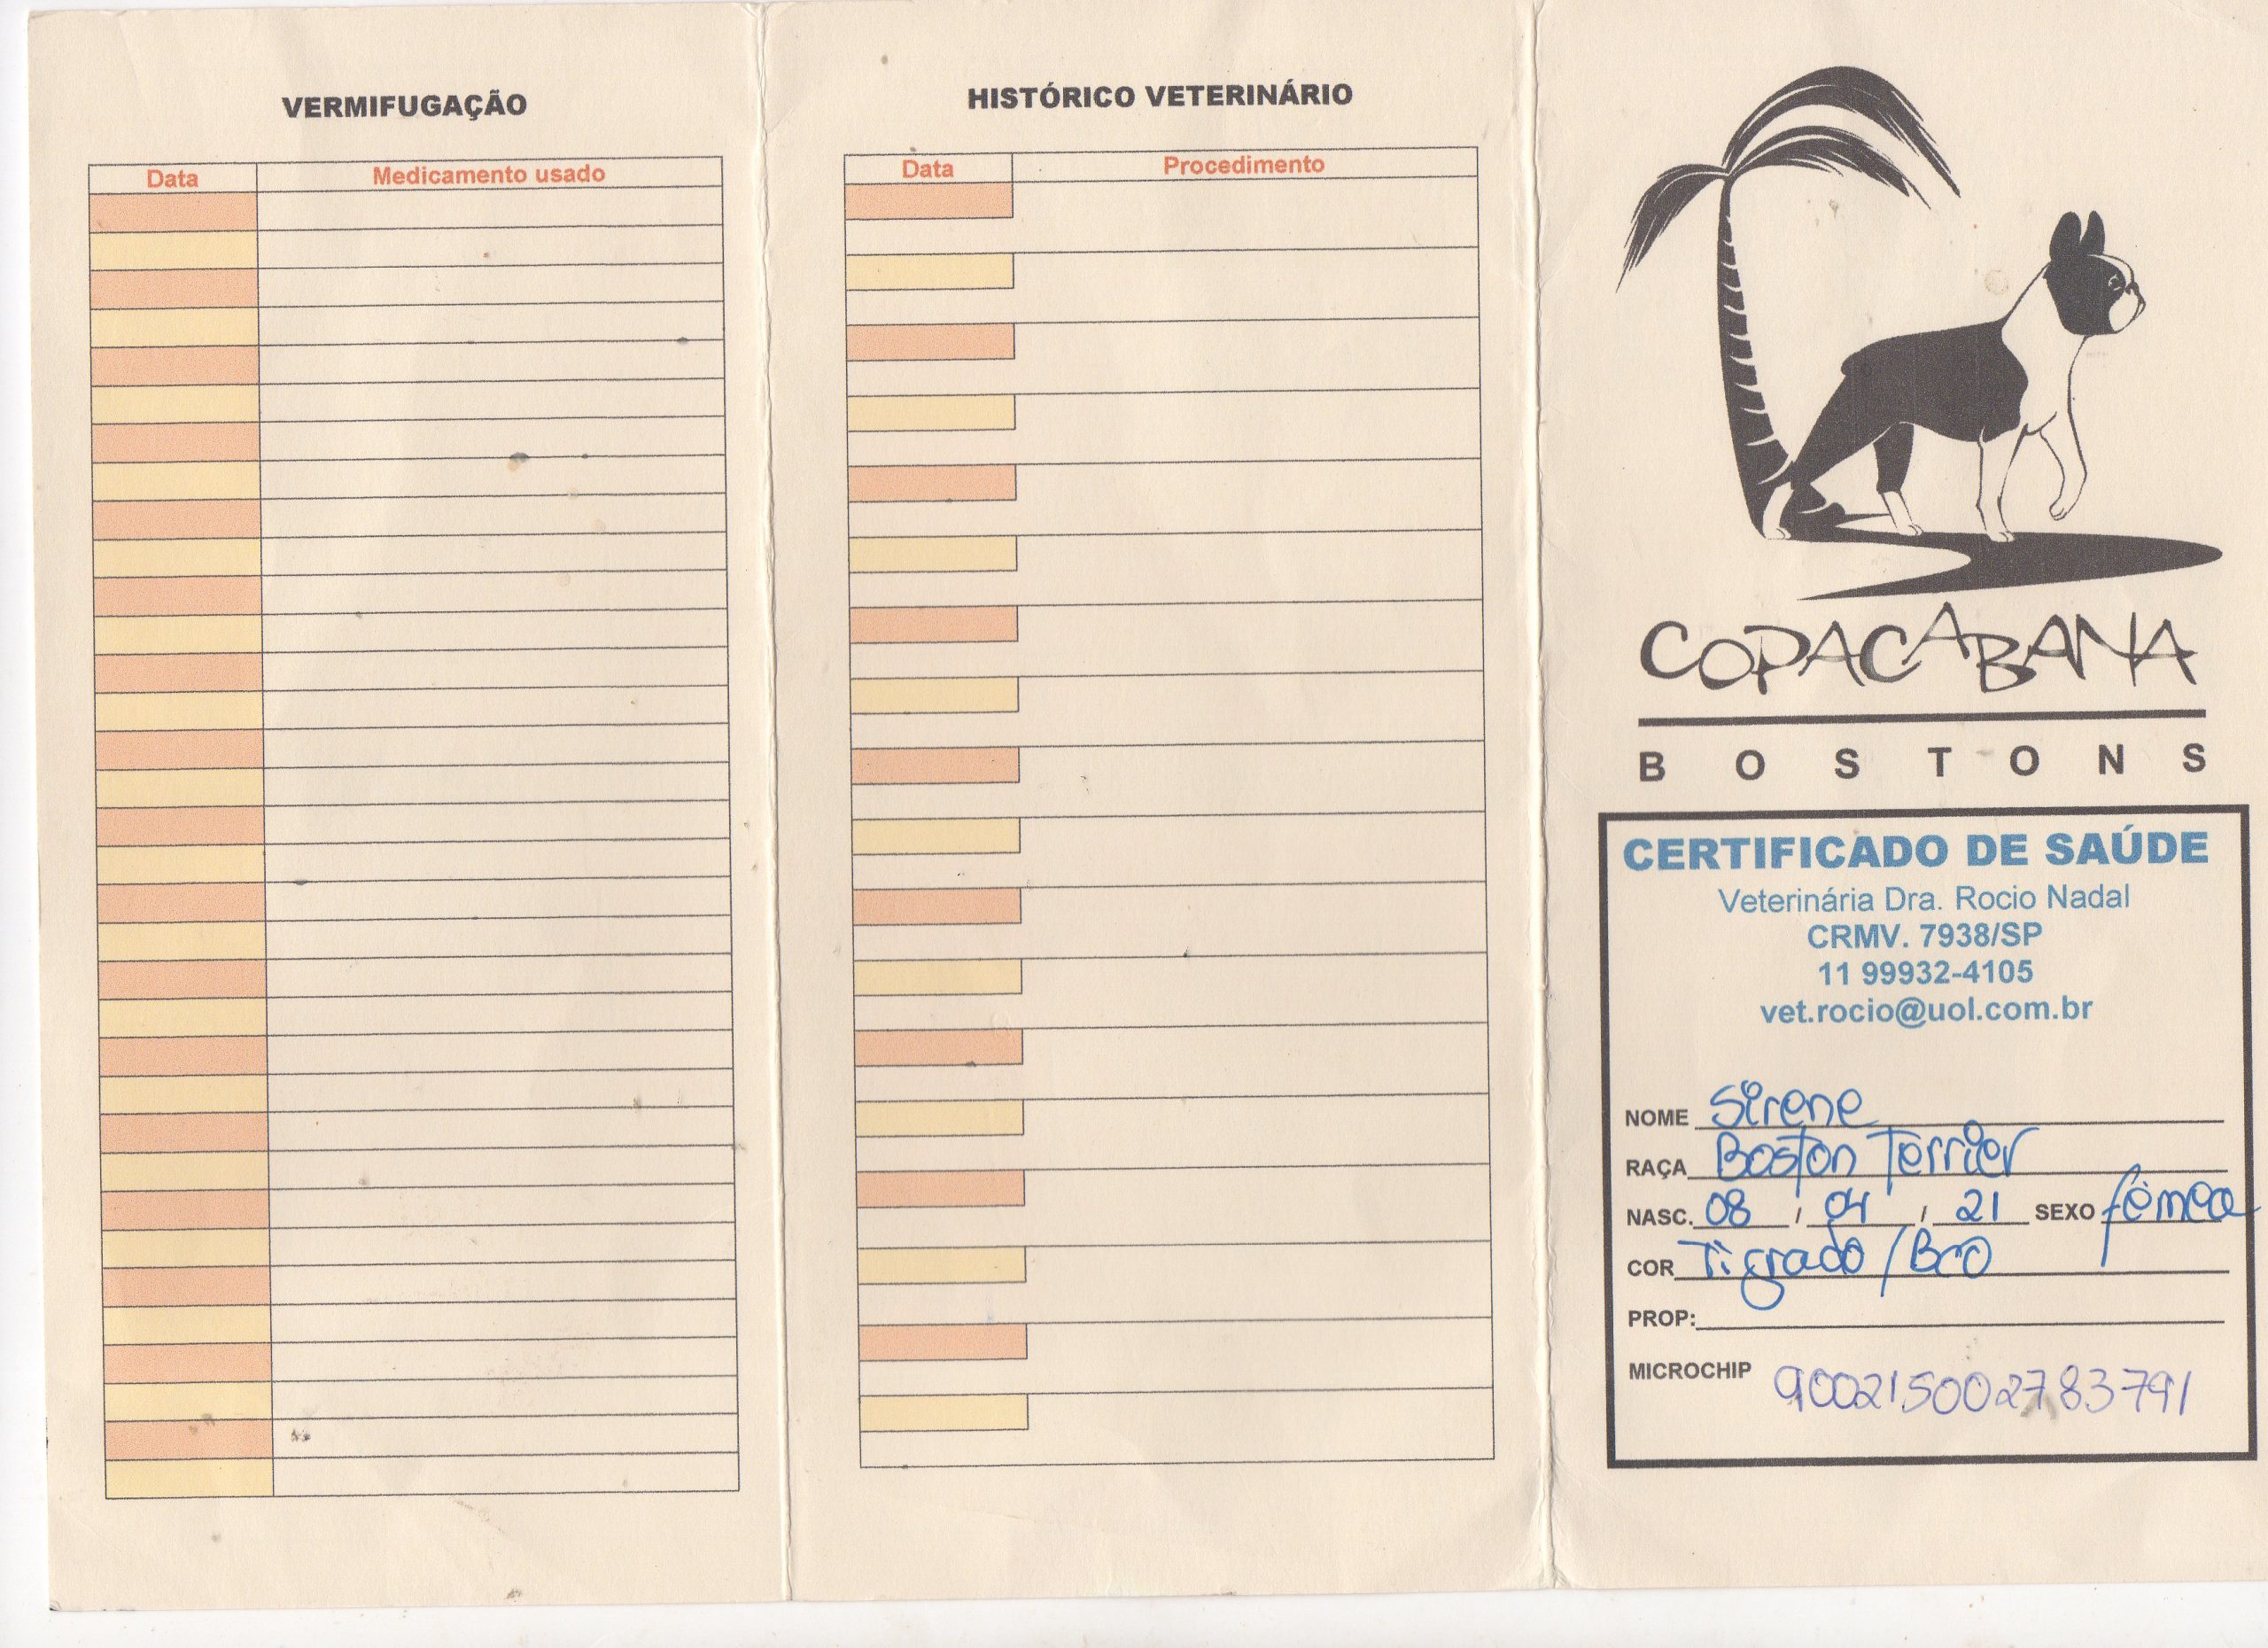 VERMIFUGAÇÃO
Data Medicamento usado
HISTÓRICO VETERINÁRIO
Data Procedimento
COPACABANA
BOSTONS
CERTIFICADO DE SAÚDE
Veterinária Dra. Rocio Nadal
CRMV. 7938/SP
11 99932-4105
vet.rocio@uol.com.br
NOME Sirene
RAÇA Boston Terrier
NASC. 08 / 04 / 21 SEXO fêmea
COR Tigrado/Bco
PROP:
MICROCHIP 900215002783791